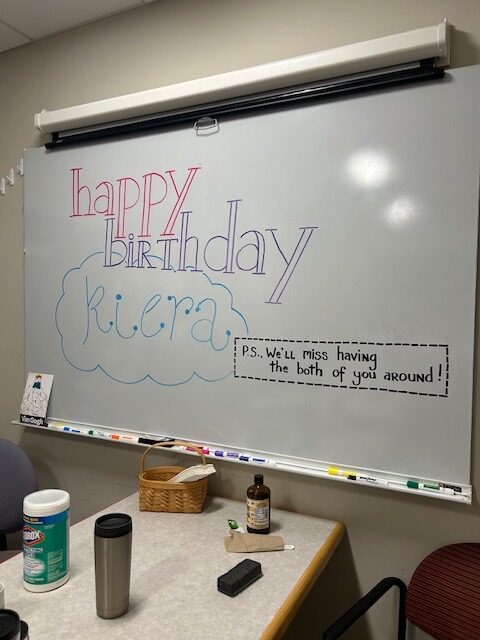 happy
birthday
Kiera
P.S., We'll miss having
the both of you around!
Van Gogh
CLOROX